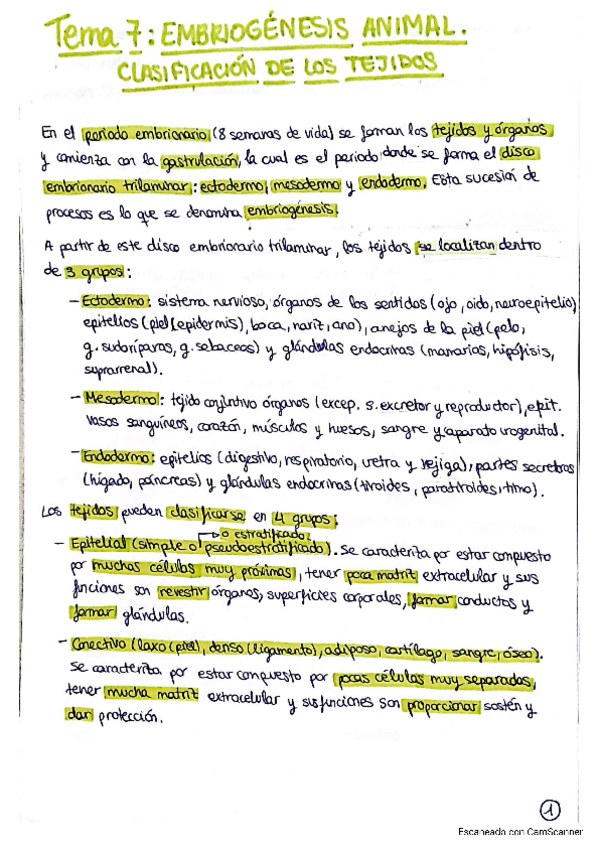 Tema 7: EMBRIOGÉNESIS ANIMAL.
CLASIFICACIÓN DE LOS TEJIDOS
En el periodo embrionario (8 semanas de vida) se forman los tejidos y órganos
y comienza con la gastrulación, la cual es el periodo donde se forma el disco
embrionario trilaminar: ectodermo, mesodermo y endodermo. Esta sucesión de
procesos es lo que se denomina embriogénesis.
A partir de este disco embrionario trilaminar, los tejidos se localizan dentro
de 3 grupos:
- Ectodermo: sistema nervioso, órganos de los sentidos (ojo, oido, neuroepitelio)
epitelios (piel (epidermis), boca, nariz, ano), anejos de la piel (pelo,
g. sudoríparas, g. sebaceas) y glándulas endocrinas (mamarias, hipófisis,
suprarrenal).
- Mesodermo: tejido conjuntivo órganos (excep. s. excretor y reproductor), epit.
vasos sanguíneos, corazón, músculos y huesos, sangre y aparato urogenital.
- Endodermo: epitelios (digestivo, respiratorio, uretra y vejiga), partes secretoras
(hígado, páncreas) y glándulas endocrinas (tiroides, paratiroides, timo).
Los tejidos pueden clasificarse en 4 grupos:
o estratificado
- Epitelial (simple o pseudoestratificado). Se caracteriza por estar compuesto
por muchas células muy próximas, tener poca matriz extracelular y sus
funciones son revestir órganos, superficies corporales, formar conductos y
formar glándulas.
- Conectivo (laxo (piel), denso (ligamento), adiposo, cartílago, sangre, óseo).
Se caracteriza por estar compuesto por pocas células muy separadas,
tener mucha matriz extracelular y sus funciones son proporcionar sostén y
dan protección.
1
Escaneado con CamScanner